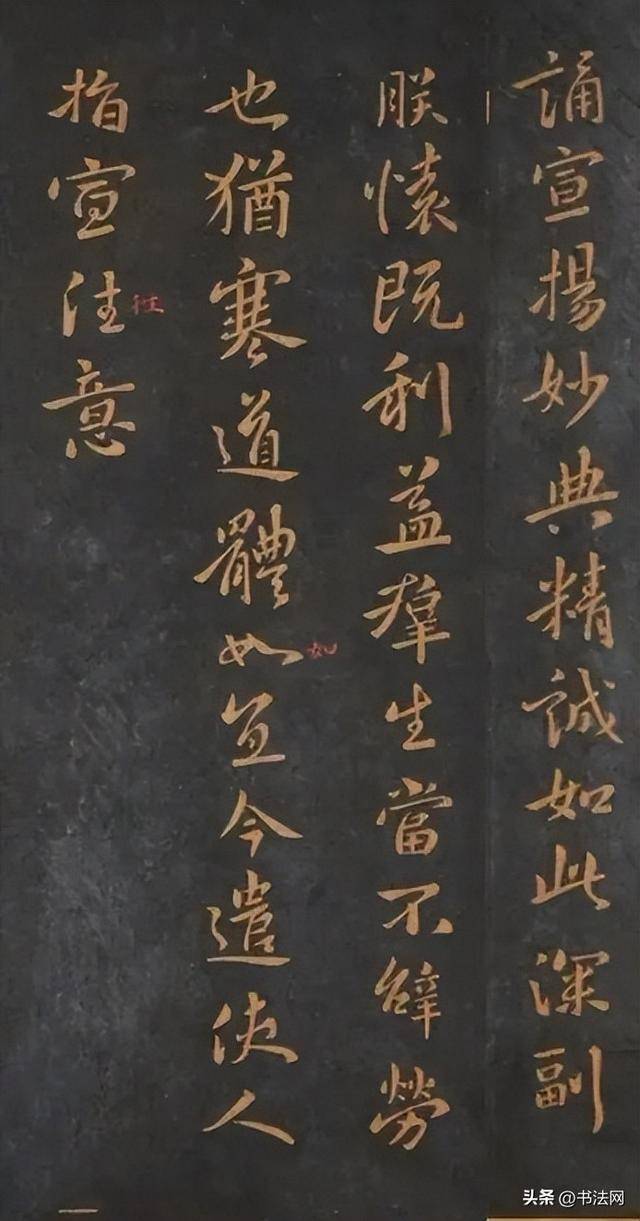 誦宣揚妙典精誠如此深副
朕懷既利益羣生當不辭勞
也猶寒道體如宜今遣使人
指宣往意
往
如
头条 @书法网